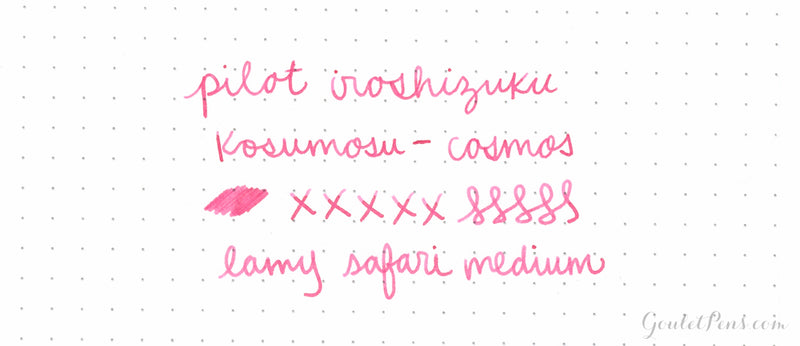 pilot iroshizuku
kosumosu - cosmos
x x x x x
lamy safari medium
GouletPens.com